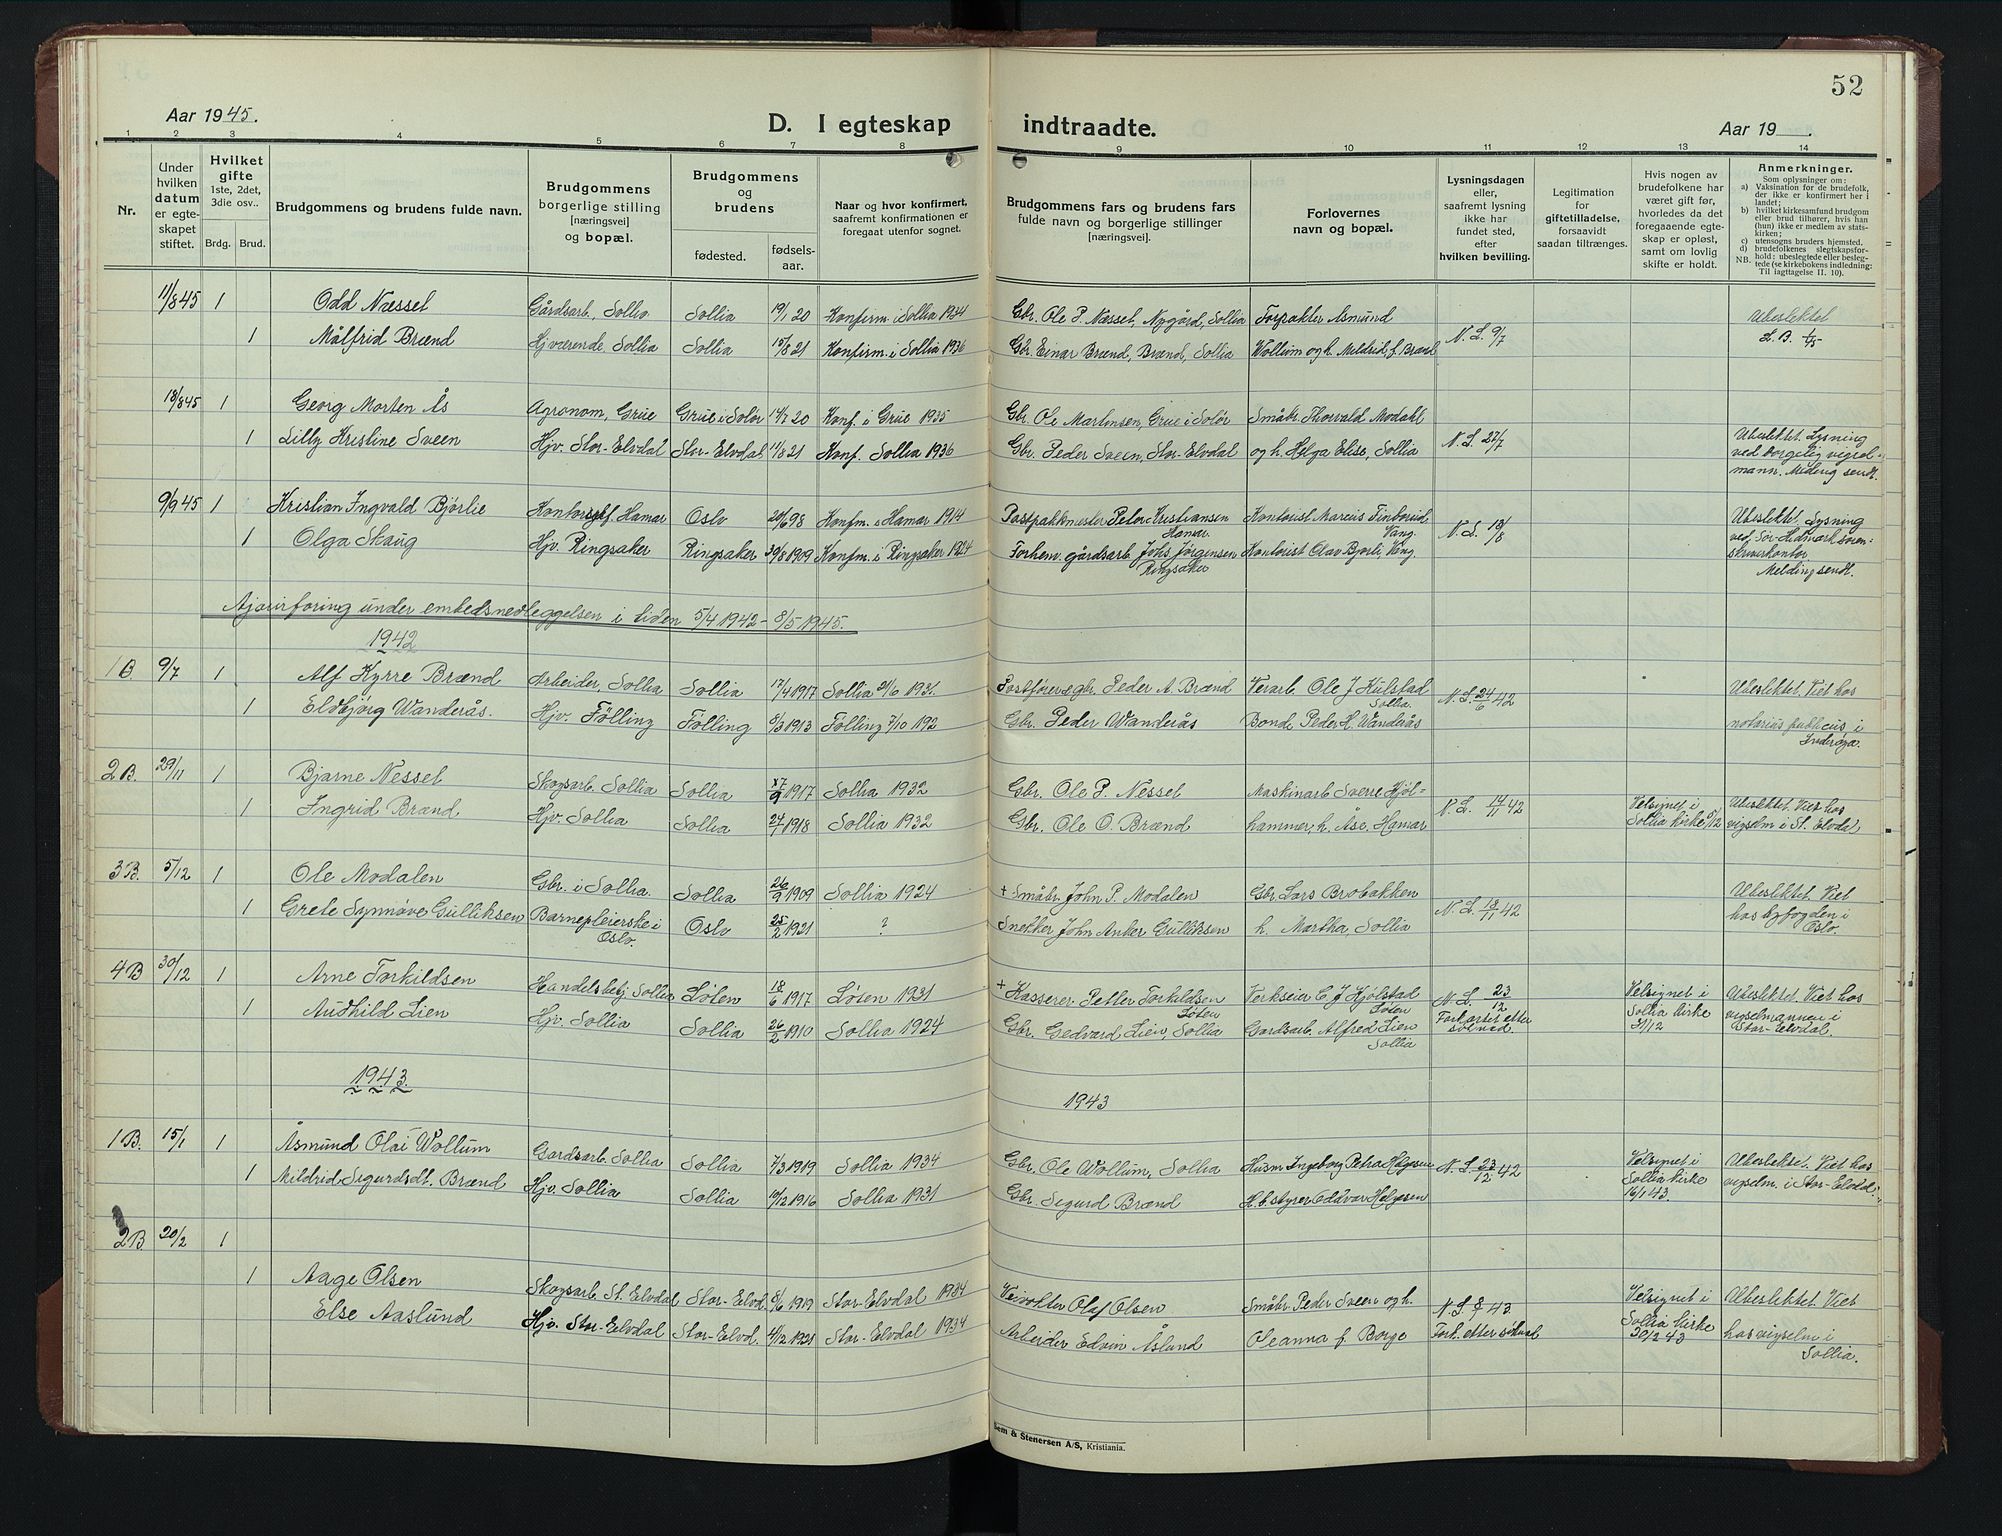 52
Aar 1945.
D. I egteskap indtraadte.
Aar 19
1 2 3 4 5 6 7 8 9 10 11 12 13 14
Nr.
Under hvilken datum er egteskapet stiftet.
Hvilket gifte 1ste, 2det, 3die osv..
Brdg. Brud.
Brudgommens og brudens fulde navn.
Brudgommens borgerlige stilling [næringsvei] og bopæl.
Brudgommens og brudens
fødested. fødselsaar.
Naar og hvor konfirmert, saafremt konfirmationen er foregaat utenfor sognet.
Brudgommens fars og brudens fars fulde navn og borgerlige stillinger [næringsvei].
Forlovernes navn og bopæl.
Lysningsdagen eller, saafremt lysning ikke har fundet sted, efter hvilken bevilling.
Legitimation for giftetilladelse, forsaavidt saadan tiltrænges.
Hvis nogen av brudefolkene har været gift før, hvorledes da det foregaaende egteskap er opløst, samt om lovlig skifte er holdt.
Anmerkninger.
Som oplysninger om:
a) Vaksination for de brudefolk, der ikke er konfirmert her i landet;
b) hvilket kirkesamfund brudgom eller brud tilhører, hvis han (hun) ikke er medlem av statskirken;
c) utensogns bruders hjemsted.
d) brudefolkenes slegtskapsforhold: ubeslegtede eller beslegtede (se kirkebokens indledning: Til iagttagelse II. 10).
NB.
11/8 45 1 Odd Næsset Gårdsarb., Sollia Sollia 19/1 20 Konfirm. i Sollia 1934 Gbr. Ole P. Næsset, Nygård, Sollia Forpakter Asmund Ubeslektet
1 Målfrid Brænd Hjværende, Sollia Sollia 15/8 21 Konfirm. i Sollia 1936 Gbr. Einar Brænd, Brænd, Sollia Wollum og h. Mildrid f. Brænd N. L. 9/7
18/8 45 1 Georg Morten Ås Agronom, Grue Grue i Solør 14/7 20 Konf. i Grue 1935 Gbr. Ole Martinsen, Grue i Solør Småbr. Thorvald Modahl
1 Lilly Kristine Sveen Hjv. Stor-Elvdal Stor-Elvdal 11/8 21 Konf. Sollia 1936 Gbr. Peder Sveen, Stor-Elvdal og h. Helga Elise, Sollia N. L. 27/7 Ubeslektet. Lysning ved borgelig vigselmann. Melding sendt.
9/9 45 1 Kristian Ingvald Bjørlie Hamar Oslo 20/6 98 Konfm. i Hamar 1914 Postpakkmester Peter Kristiansen Hamar Kontorist Marcus Vang.
1 Olga Skaug Hjv. Ringsaker Ringsaker 30/8 1909 Konfm. i Ringsaker 1924 Forhenv. gårdsarb. Johs. Jørgensen Ringsaker Kontorist Olav Bjørli, Vang N. L. 13/8 Ubeslektet. Lysning ved Sør-Hedmark sorenskriverkontor Melding sendt.
Ajourføring under embedsnedleggelsen i tiden 5/4 1942 - 8/5 1945.
1942
1B 9/7 1 Alf Kyrre Brænd Arbeider, Sollia Sollia 17/4 1917 Sollia 21/6 1931. Peder A. Brænd Verarb. Ole J Hulstad Sollia. Ubeslektet. Viet hos
1 Eldbjørg Wanderås. Hjv. Følling Følling 8/3 1913 Følling 7/10 192 Gbr. Peder Wanderås Bonde Peder H. Wanderås N. L. 24/6 42 notarius publicus i Inderøya.
2B. 29/11 1 Bjarne Nesset Skogsarb. Sollia Sollia 1917 Sollia 1932 Gbr. Ole P. Nesset Maskinarb. Sverre Hjøl-
1 Ingrid Brænd Hjv. Sollia Sollia 24/1 1918 Sollia 1932 Gbr. Ole O. Brænd hammer, h. Åse, Hamar N. L. 14/11 42 Velsignet i Sollia kirke 6/12 Ubeslektet. Viet hos vigselm i St. Elvdal
3B. 5/12 1 Ole Modalen Gbr. i Sollia. Sollia 26/9 1909 Sollia 1924 + Småbr. John P. Modalen Gbr. Lars Brobakken
1 Grete Synnøve Gulliksen Barnepleierske i Oslo. Oslo 25/2 1921 ? Snekker John Anker Gulliksen h. Martha, Sollia N. L. 18/11 42 Ubeslektet. Viet hos byfogden i Oslo.
4B 30/12 1 Arne Torkildsen Handelsbetj. Sollia Løten 18/6 1917 Løten 1931 + Kasserer Petter Torkildsen Løten Verkseier C. J. Hjølstad Løten N. L. 23/12 Velsignet i Sollia kirke 31/12 Ubeslektet. Viet hos vigselmannen i Stor-Elvdal.
1 Audhild Lien Hjv. Sollia Sollia 26/2 1910 Sollia 1924 Gbr. Gedvard Lien, Sollia Gardsarb. Alfred Lien Sollia Forkortet etter
1943 1943
1B. 15/1 1 Åsmund Olai Wollum Gardsarb. Sollia Sollia 7/3 1919 Sollia 1934 Gbr. Ole Wollum, Sollia Husm Ingeborg Petra Helgesen N. L. 23/12 42 Velsignet i Sollia kirke 16/1 43 Ubeslektet. Viet hos vigselm. i Stor-Elvdal.
1 Mildrid Sigurdsdt. Brænd Hjv. Sollia Sollia 19/12 1916 Sollia 1931 Gbr. Sigurd Brænd H.b.styrer Oddvar Helgesen
2B 20/2 1
1 Aage Olsen Skogsarb. St. Elvdal Stor-Elvd. 8/6 1919 Stor-Elvdal 1934 Olaf Olsen Småbr. Peder Sveen og h. N. L. 43 Velsignet i Sollia kirke 20/2 43 Ubeslektet. Viet
Else Aaslund Hjv. Stor-Elvdal Stor-Elvd. 4/12 1921 Stor-Elvdal 1934 Arbeider Edvin Åslund Oleanna f. Borge hos vigselm i Sollia.
Sem & Stenersen A/S, Kristiania.